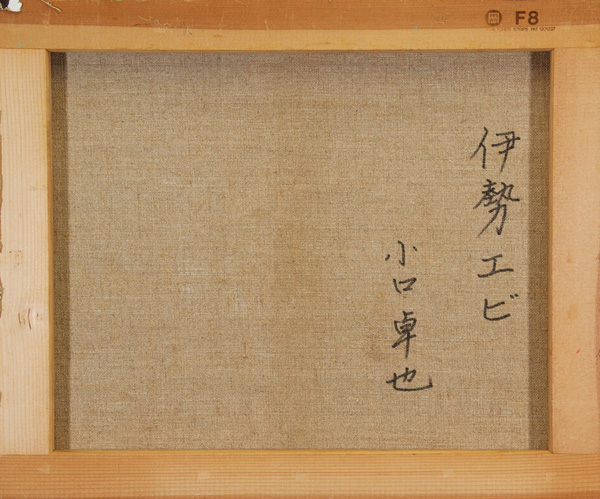 F8
伊勢エビ
小口卓也